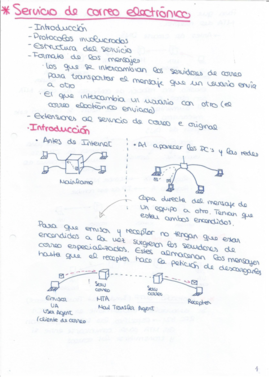 * Servicio de correo electrónico
- Introducción
- Protocolos involucrados
- Estructura del servicio
- Formato de los mensajes
· Los que se intercambian los servidores de correo
para transportar el mensaje que un usuario envíe
a otro
· El que intercambia un usuario con otro (el
correo electrónico enviado)
- Extensiones al servicio de correo e original
- Introducción
• Antes de Internet
Mainframe
• Al aparecer los PC's y las redes
Copia directa del mensaje de
un equipo a otro. Tenían que
estar ambos encendidos.
Para que emisor y receptor no tengan que estar
encendidos a la vez surgieron los servidores de
correo especializados. Estos almacenan los mensajes
hasta que el receptor hace la petición de descargarlos
Emisor
UA
User Agent
(cliente de correo)
Serv
correo
MTA
Mail Transfer Agent
Serv
correo
Receptor
1